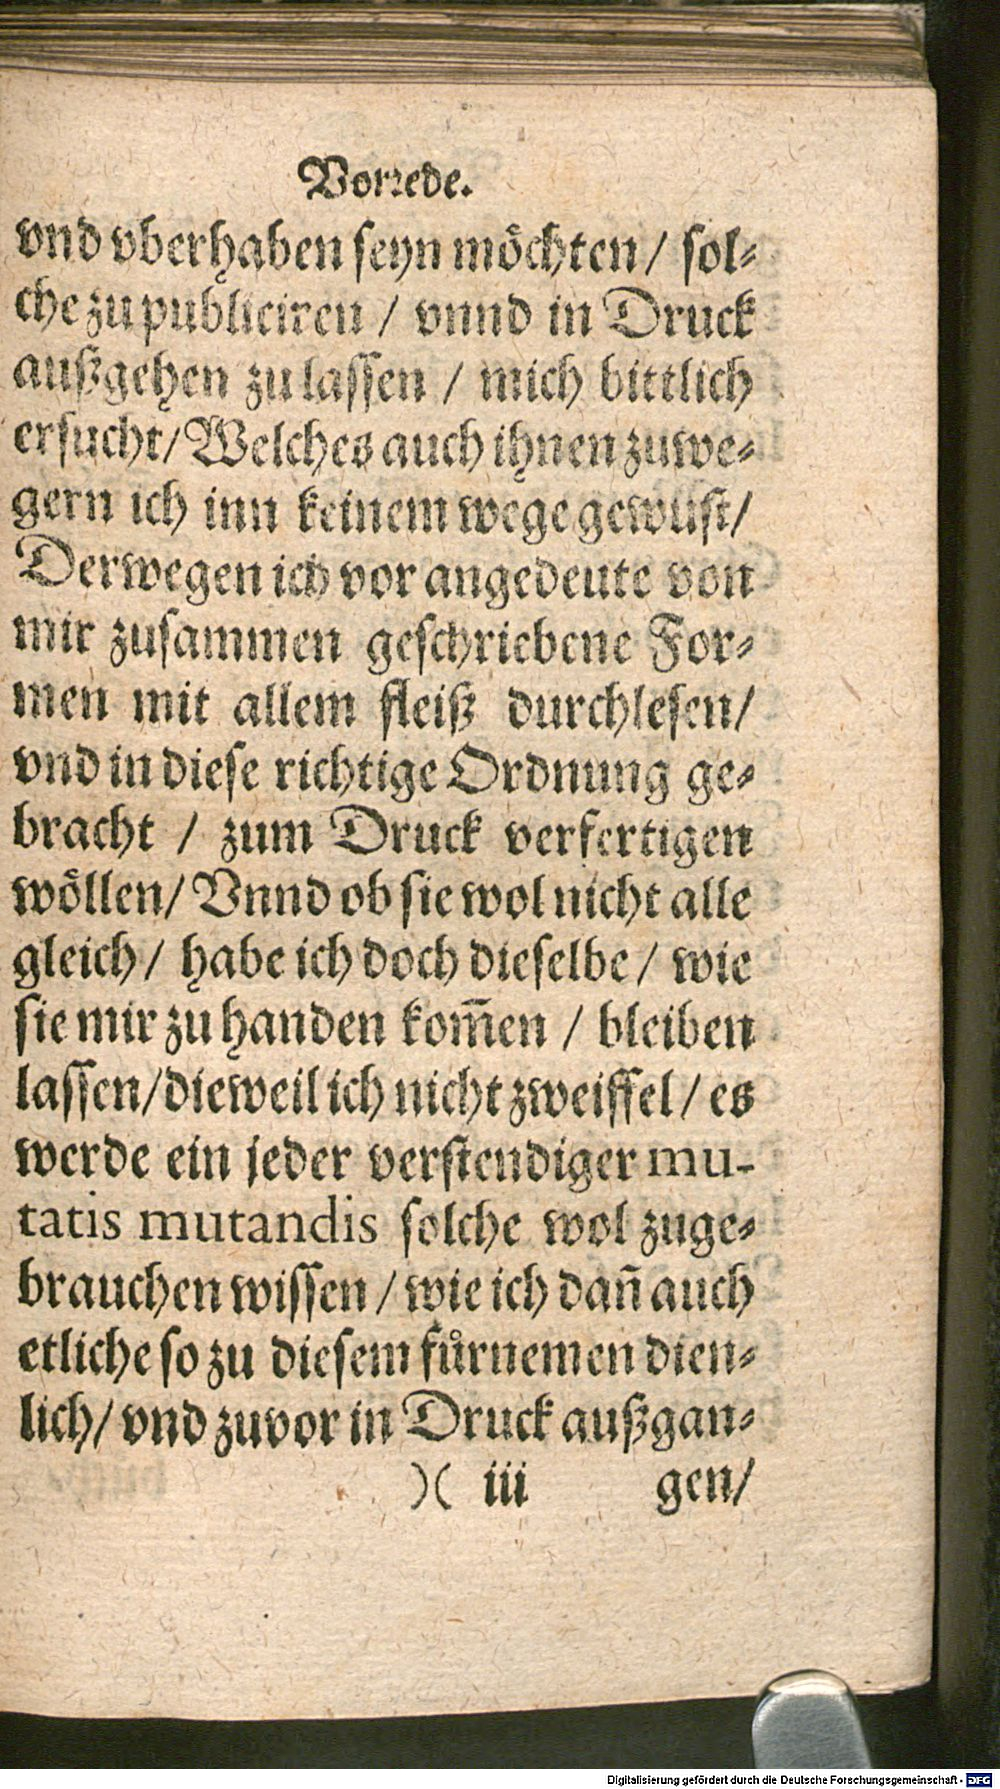 Vorrede.
vnd vberhaben seyn möchten / sol-
che zu publiciren / vnnd in Druck
außgehen zu lassen / mich bittlich
ersucht/ Welches auch ihnen zuwe-
gern ich inn keinem wege gewust/
Derwegen ich vor angedeute von
mir zusammen geschriebene For-
men mit allem fleiß durchlesen/
vnd in diese richtige Ordnung ge-
bracht / zum Druck verfertigen
wöllen/ Vnnd ob sie wol nicht alle
gleich / habe ich doch dieselbe / wie
sie mir zu handen kom̃en / bleiben
lassen/ dieweil ich nicht zweiffel / es
werde ein jeder verstendiger mu-
tatis mutandis solche wol zuge-
brauchen wissen / wie ich dañ auch
etliche so zu diesem fůrnemen dien-
lich/ vnd zuvor in Druck außgan-
)( iii gen/
Digitalisierung gefördert durch die Deutsche Forschungsgemeinschaft - DFG